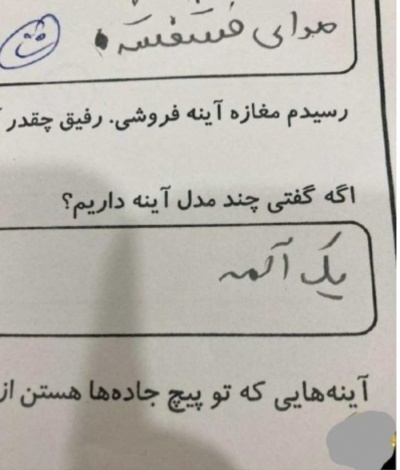 صدای فسفسه
رسیدم مغازه آینه فروشی. رفیق چقدر
اگه گفتی چند مدل آینه داریم؟
یک آلمه
آینه‌هایی که تو پیچ جاده‌ها هستن از